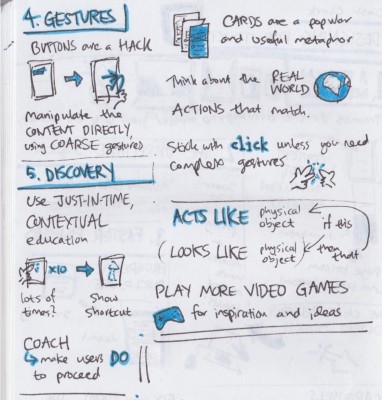 4. GESTURES
BUTTONS are a HACK
manipulate the
CONTENT DIRECTLY,
using COARSE gestures
5. DISCOVERY
Use JUST-IN-TIME,
CONTEXTUAL
education
x10
lots of
times?
Show
shortcut
COACH
make users DO
to proceed
CARDS are a popular
and useful metaphor
Think about the REAL
WORLD
ACTIONS that match.
Stick with click unless you need
complex gestures
ACTS LIKE physical
object
if this
(LOOKS LIKE physical
object)
then
that
PLAY MORE VIDEO GAMES
for inspiration and ideas